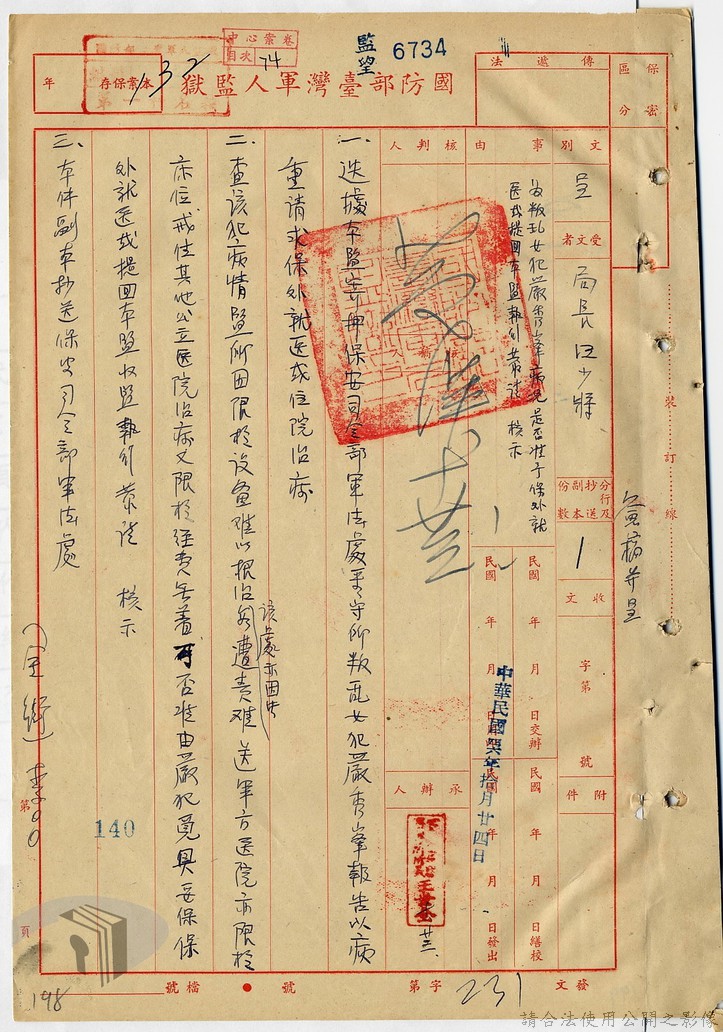 監望 6734
中心案卷
目次 74
國防部臺灣軍人監獄
年
本案保存
132
傳遞法
保密區分
文別
呈
受文者
局長汪少將
分行及抄送副本份數
1
事由
為叛乱女犯嚴秀峯病況是否准予保外就
医或提回本監執行恭請 核示
核判人
簽稿并呈
裝訂線
收文 字第 號
附件
民國 年 月 日交辦
民國 年 月 日繕校
民國 年 月 日發出
中華民國 年拾月廿四日
承辦人
一、迭據本監寄押保安司令部軍法處看守所叛亂女犯嚴秀峯報告以病
重請求保外就医或住院治病
二、查該犯病情監所囿限於设备难以根治
該處亦因
遭责难送軍方医院亦限於
床位或住其他公立医院治病又限於經費無着可否准由嚴犯覓具妥保保
外就医或提回本監收監執行恭請 核示
三、本件副本抄送保安司令部軍法處
(全銜) 李○○
第 140 頁
198
發文 字第 231 號
檔號
請合法使用公開之影像